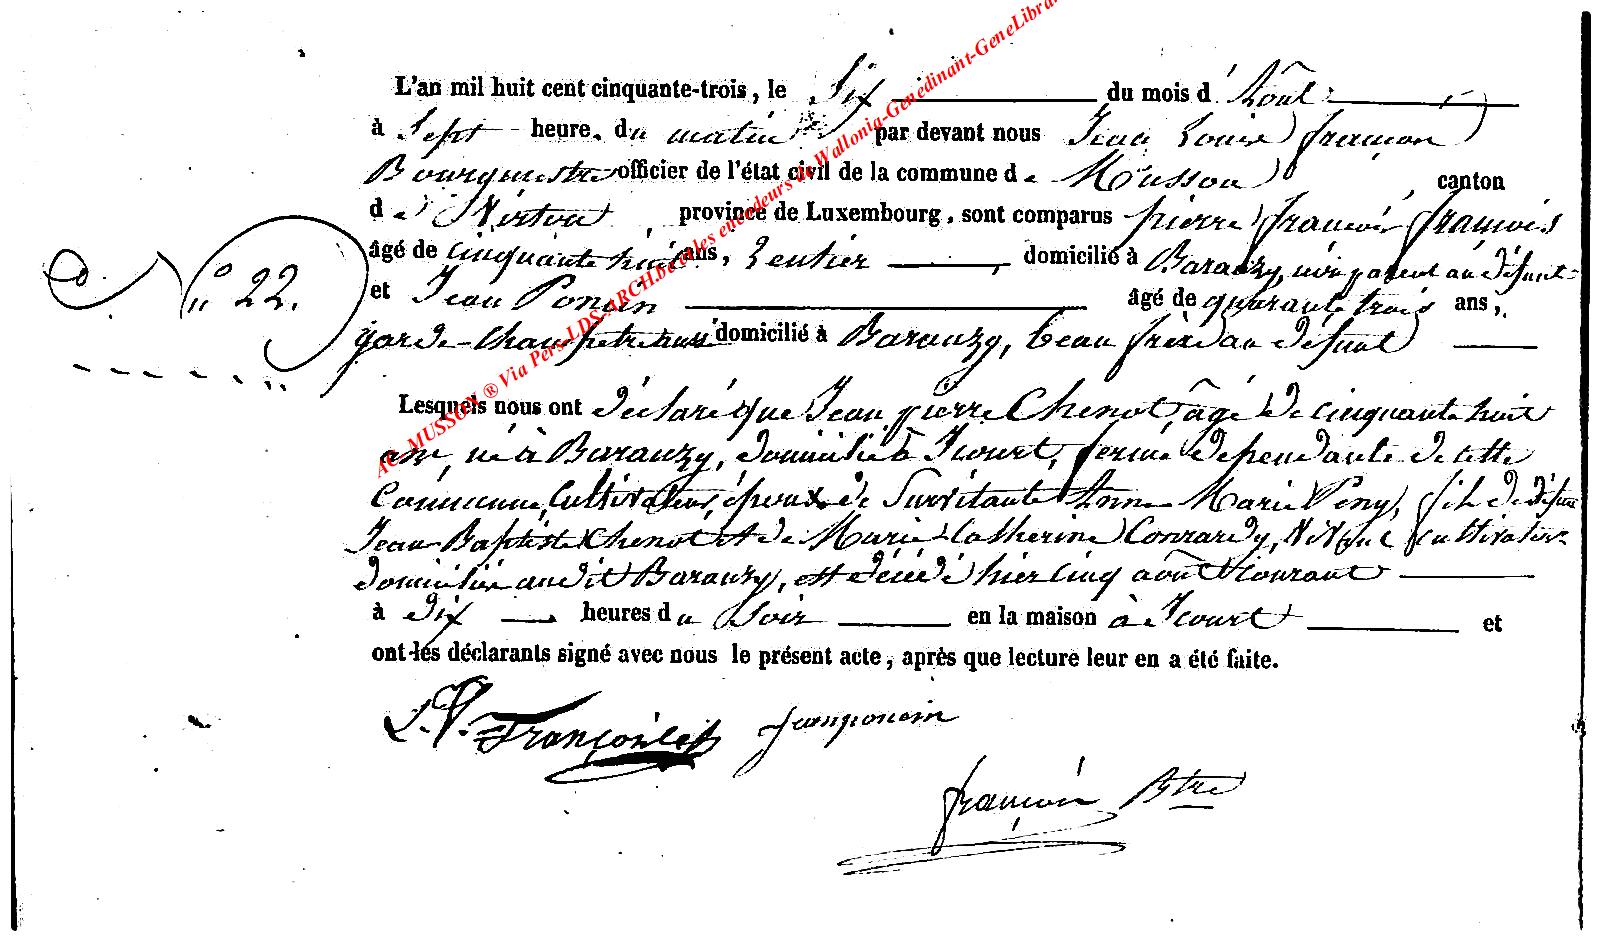 L'an mil huit cent cinquante-trois, le Six du mois d' Août
à Sept heure. du matin par devant nous Jean Louis françois
Bourgmestre officier de l'état civil de la commune de Musson canton
de Virton, province de Luxembourg, sont comparus pierre françois françois
âgé de cinquante huit ans, Rentier domicilié à Baranzy, non parent au défunt
N.° 22.
et Jean Poncin âgé de quarante trois ans,
garde-champêtre domicilié à Baranzy, beau frère au défunt
Lesquels nous ont déclaré que Jean pierre Chenot, âgé de cinquante huit
ans, né à Baranzy, domicilié à Icourt, ferme dépendante de cette
Commune, Cultivateur, époux de Survivante Anne Marie Pony, fils de défunt
Jean Baptiste Chenot et de Marie Catherine Conrardy, cultivateur
domiciliée audit Baranzy, est décédé hier cinq août courant
à dix heures du Soir en la maison à Icourt et
ont les déclarants signé avec nous le présent acte, après que lecture leur en a été faite.
P. F. François jeanponcin
françois Btre
AC MUSSON ® Via Pers-LDS-ARCH.be & les encodeurs de Wallonia-Genedinant-GeneLibra